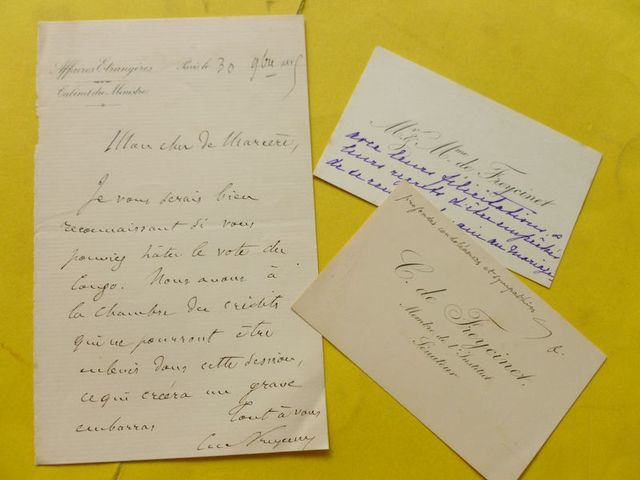 Affaires Etrangères
Cabinet du Ministre
Paris le 30 9bre
Mon cher de Marcère,
Je vous serais bien
reconnaissant si vous
pouviez hâter le vote du
Congo. Nous avons à
la Chambre des crédits
qui ne pourront être
enlevés dans cette session,
ce qui créera un grave
embarras
Tout à vous
Mr & Mme de Freycinet
avec leurs félicitations &
leurs regrets d'être empêchés
de ce au mariage.
profondes condoléances et sympathies
C. de Freycinet.
Membre de l'Institut
Sénateur